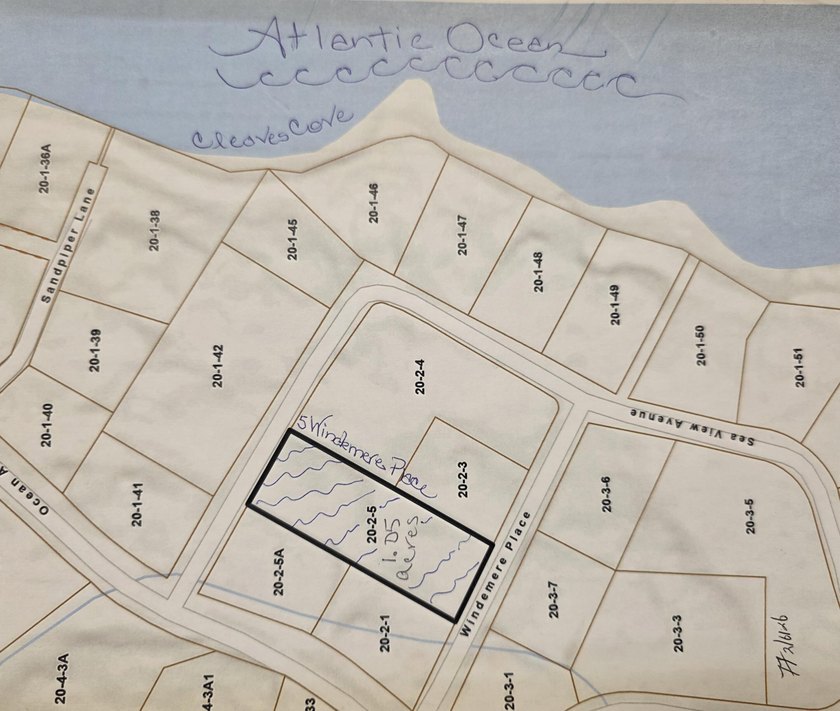 Atlantic Ocean
Cleaves Cove
20-1-36A
Sandpiper Lane
20-1-38
20-1-45
20-1-46
20-1-47
20-1-48
20-1-49
20-1-50
20-1-51
20-1-39
20-1-42
20-1-40
20-1-41
Ocean A
20-2-4
5 Windemere Place
20-2-3
20-2-5
1.05
acres
20-2-5A
20-2-1
Windemere Place
Sea View Avenue
20-3-6
20-3-5
20-3-7
20-3-3
20-3-1
20-4-3A
4-3A1
33